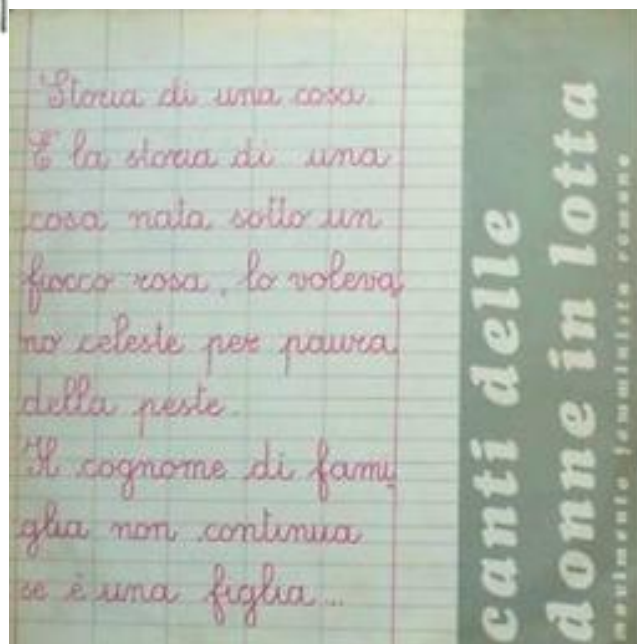 Storia di una cosa
È la storia di una
cosa nata sotto un
fiocco rosa, lo voleva
no celeste per paura
della peste.
Il cognome di fami
glia non continua
se è una figlia...
canti delle
donne in lotta
movimento femminista romano